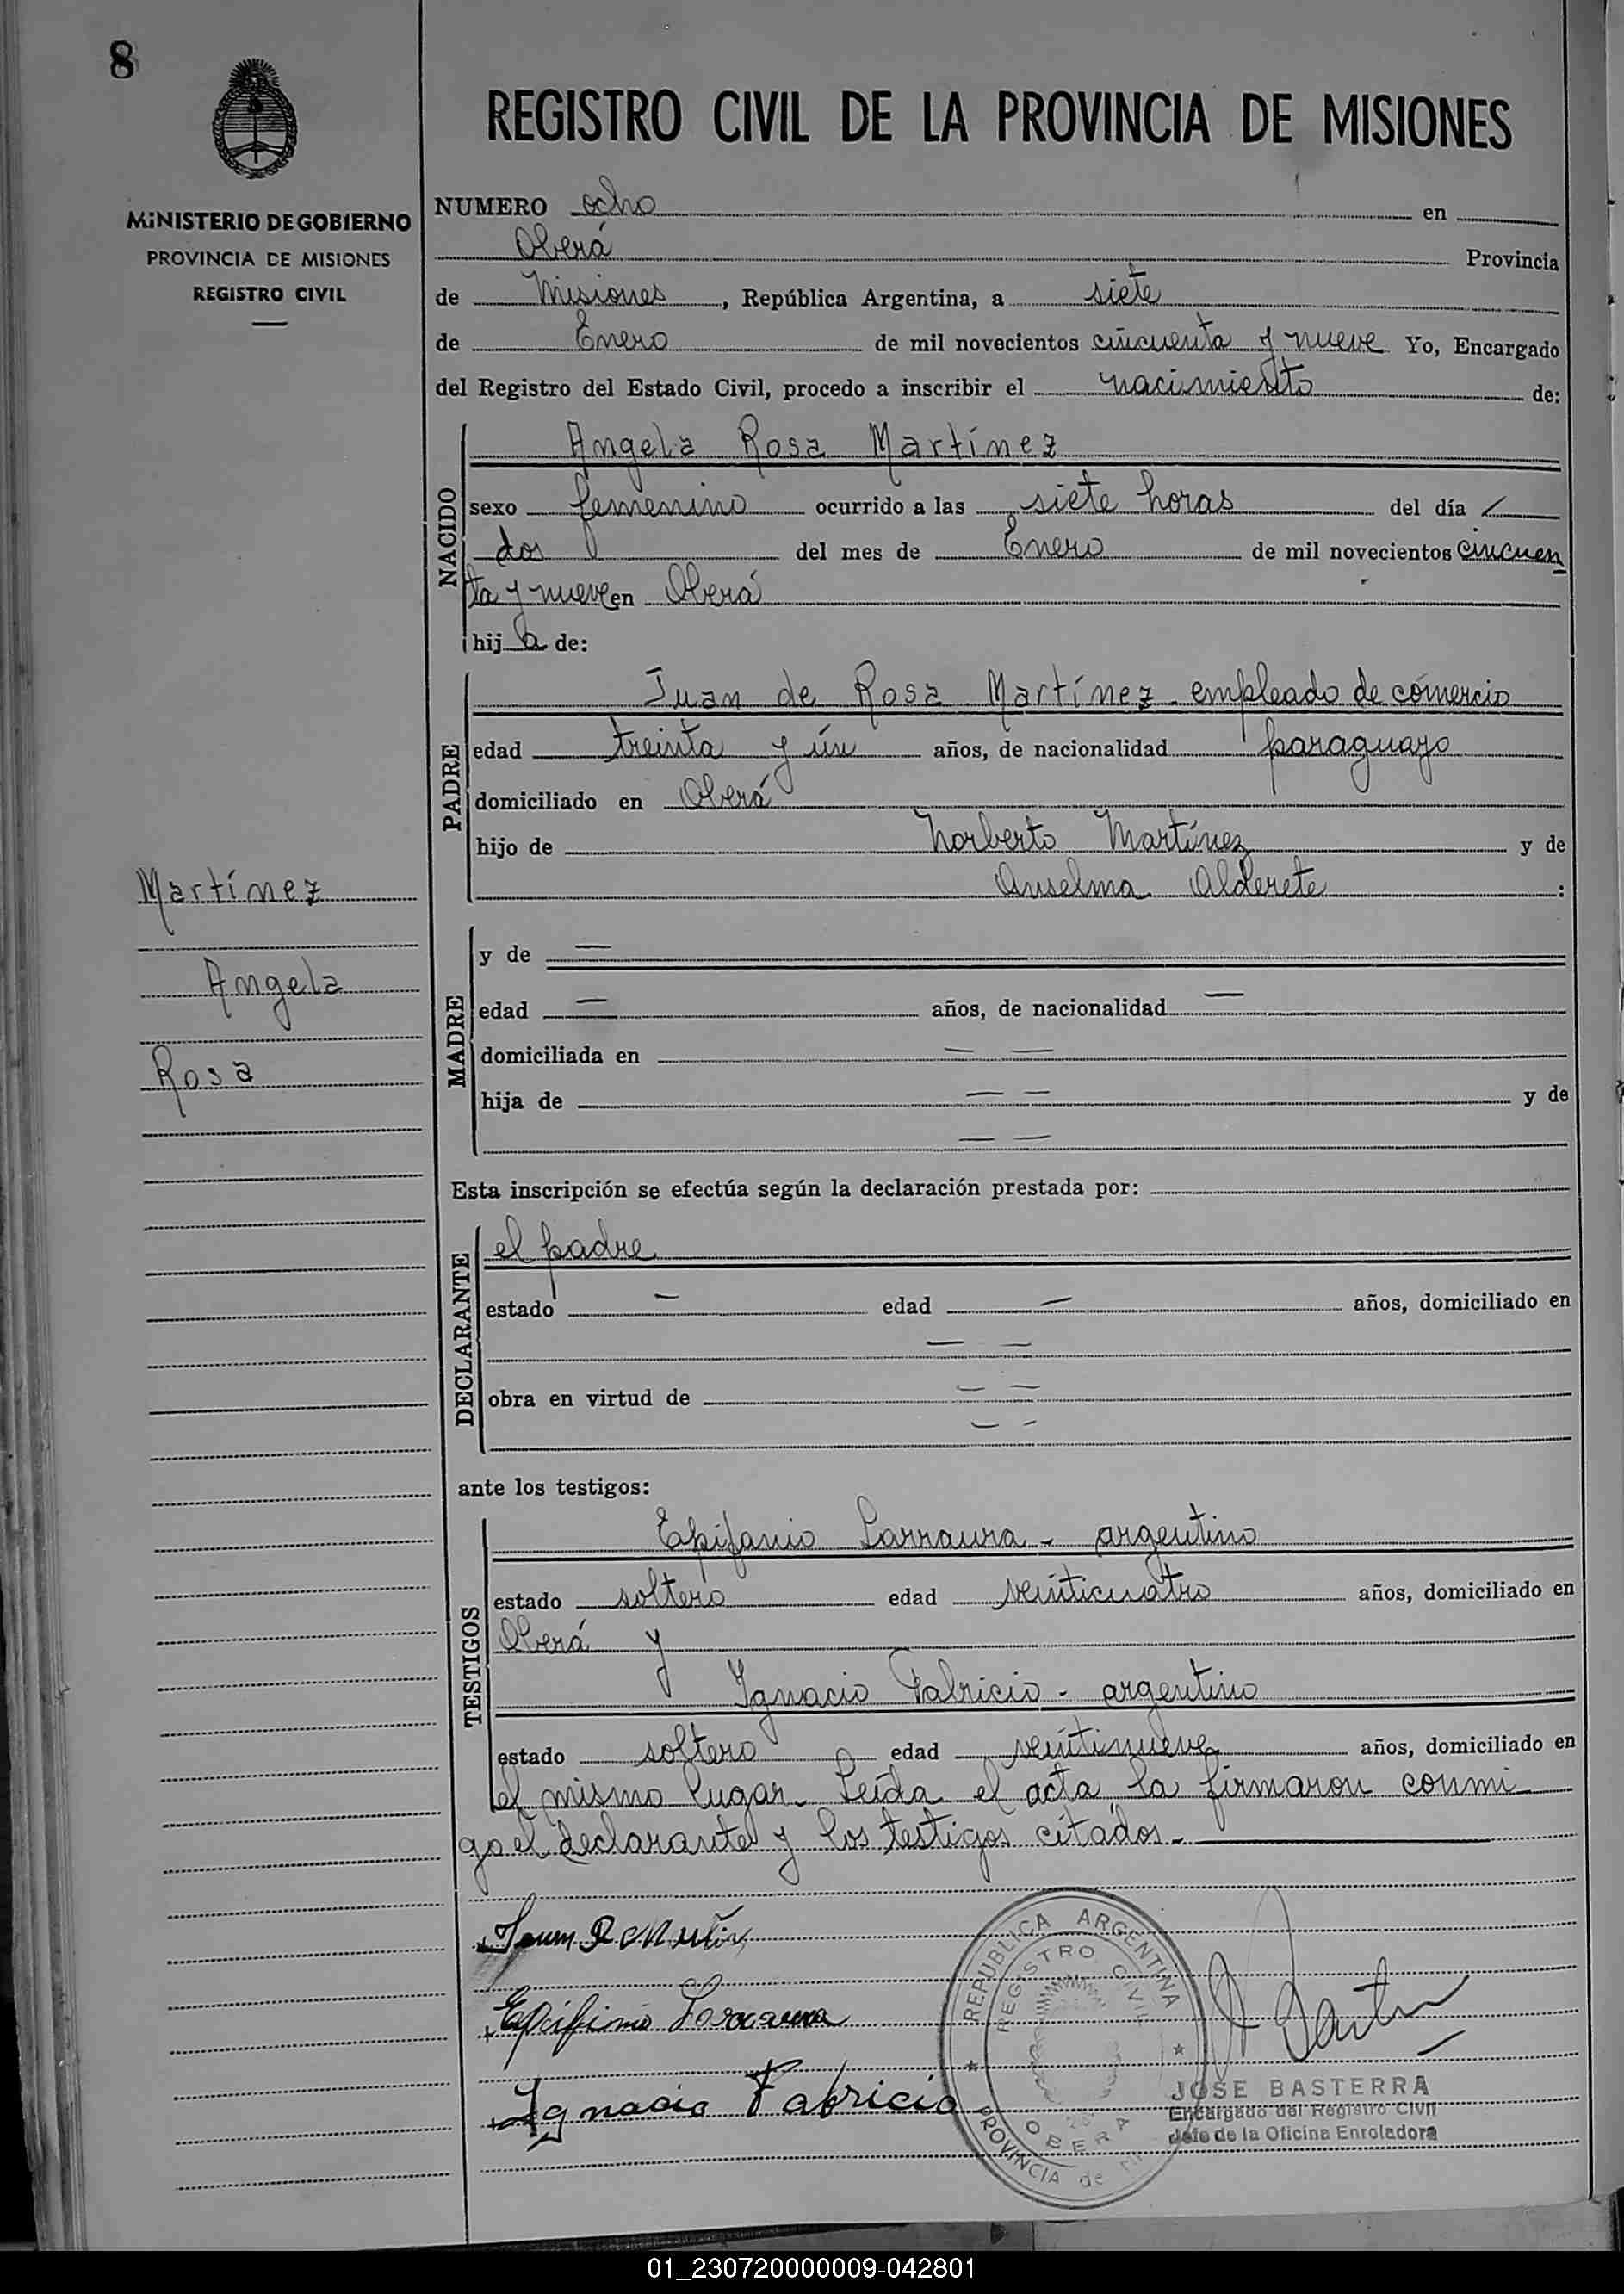 8
MINISTERIO DE GOBIERNO
PROVINCIA DE MISIONES
REGISTRO CIVIL
REGISTRO CIVIL DE LA PROVINCIA DE MISIONES
NUMERO ocho en
Oberá Provincia
de Misiones, República Argentina, a siete
de Enero de mil novecientos cincuenta y nueve Yo, Encargado
del Registro del Estado Civil, procedo a inscribir el nacimiento de:
NACIDO
Angela Rosa Martínez
sexo femenino ocurrido a las siete horas del día
dos del mes de Enero de mil novecientos cincuen
ta y nueve en Oberá
hija de:
PADRE
Juan de Rosa Martínez - empleado de comercio
edad treinta y ún años, de nacionalidad paraguayo
domiciliado en Oberá
hijo de Norberto Martínez y de
Anselma Alderete :
Martínez
Angela
Rosa
MADRE
y de —
edad — años, de nacionalidad —
domiciliada en — —
hija de — — y de
— —
Esta inscripción se efectúa según la declaración prestada por:
DECLARANTE
el padre
estado — edad — años, domiciliado en
— —
obra en virtud de — —
— —
ante los testigos:
TESTIGOS
Epifanio Larraura - argentino
estado soltero edad veinticuatro años, domiciliado en
Oberá y
Ignacio Fabricio - argentino
estado soltero edad veintinueve años, domiciliado en
el mismo lugar. Leída el acta la firmaron conmi
go el declarante y los testigos citados.-
Ignacio Fabricio
REPUBLICA ARGENTINA
REGISTRO CIVIL
OBERA
PROVINCIA de
JOSE BASTERRA
Encargado del Registro Civil
Jefe de la Oficina Enroladora
01_230720000009-042801